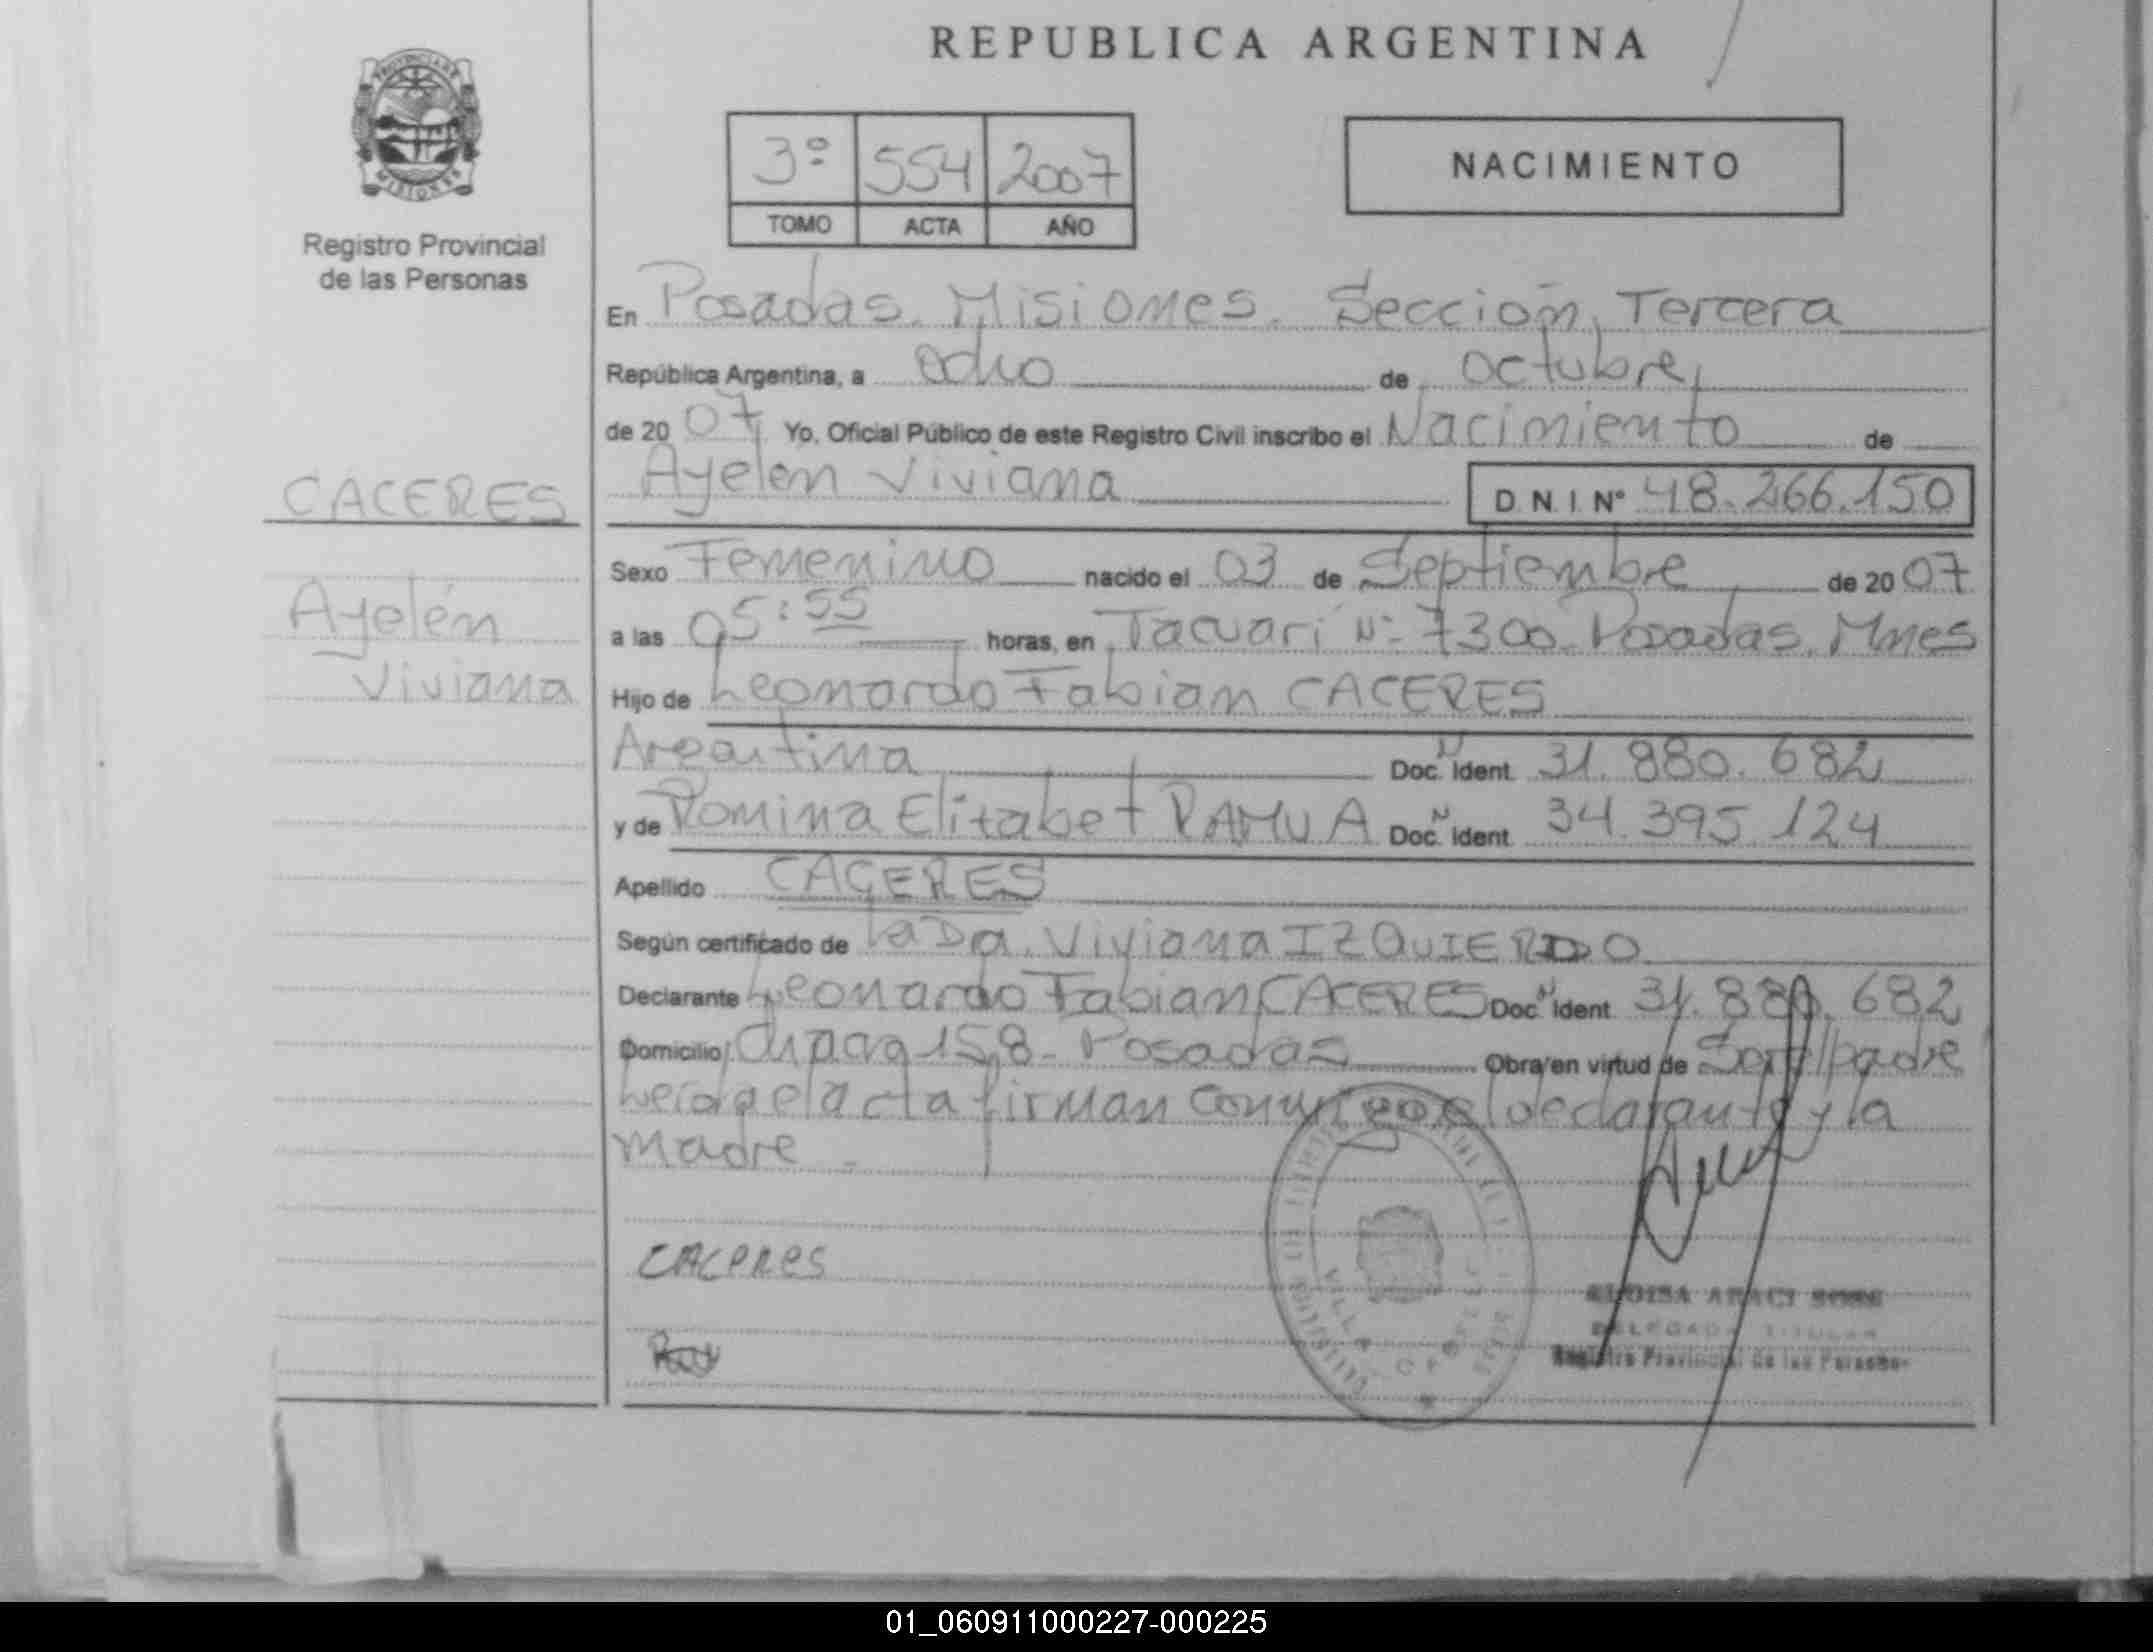 REPUBLICA ARGENTINA
PROVINCIA DE
MISIONES
Registro Provincial
de las Personas
3º 554 2007
TOMO ACTA AÑO
NACIMIENTO
En Posadas. Misiones. Sección Tercera
República Argentina, a ocho de octubre
de 2007 Yo, Oficial Público de este Registro Civil inscribo el Nacimiento de
CACERES
Ayelén
Viviana
Ayelen Viviana D.N.I. Nº 48.266.150
Sexo Femenino nacido el 03 de Septiembre de 2007
a las 05:55 horas, en Tacuarí Nº 7300. Posadas. Mnes
Hijo de Leonardo Fabian CACERES
Argentina Doc. Ident. Nº 31.880.682
y de Romina Elizabet Doc. Ident. Nº 34.395.124
Apellido CACERES
Según certificado de la Dra. Viviana IZQUIERDO
Declarante Leonardo Fabian CACERES Doc. Ident. Nº 31.880.682
Domicilio 158 - Posadas Obra en virtud de Ser el padre
Leida el acta firman conmigo el declarante y la
madre -
CACERES
VILLA
DELEGADA TITULAR
Registro Provincial de las Personas
01_060911000227-000225